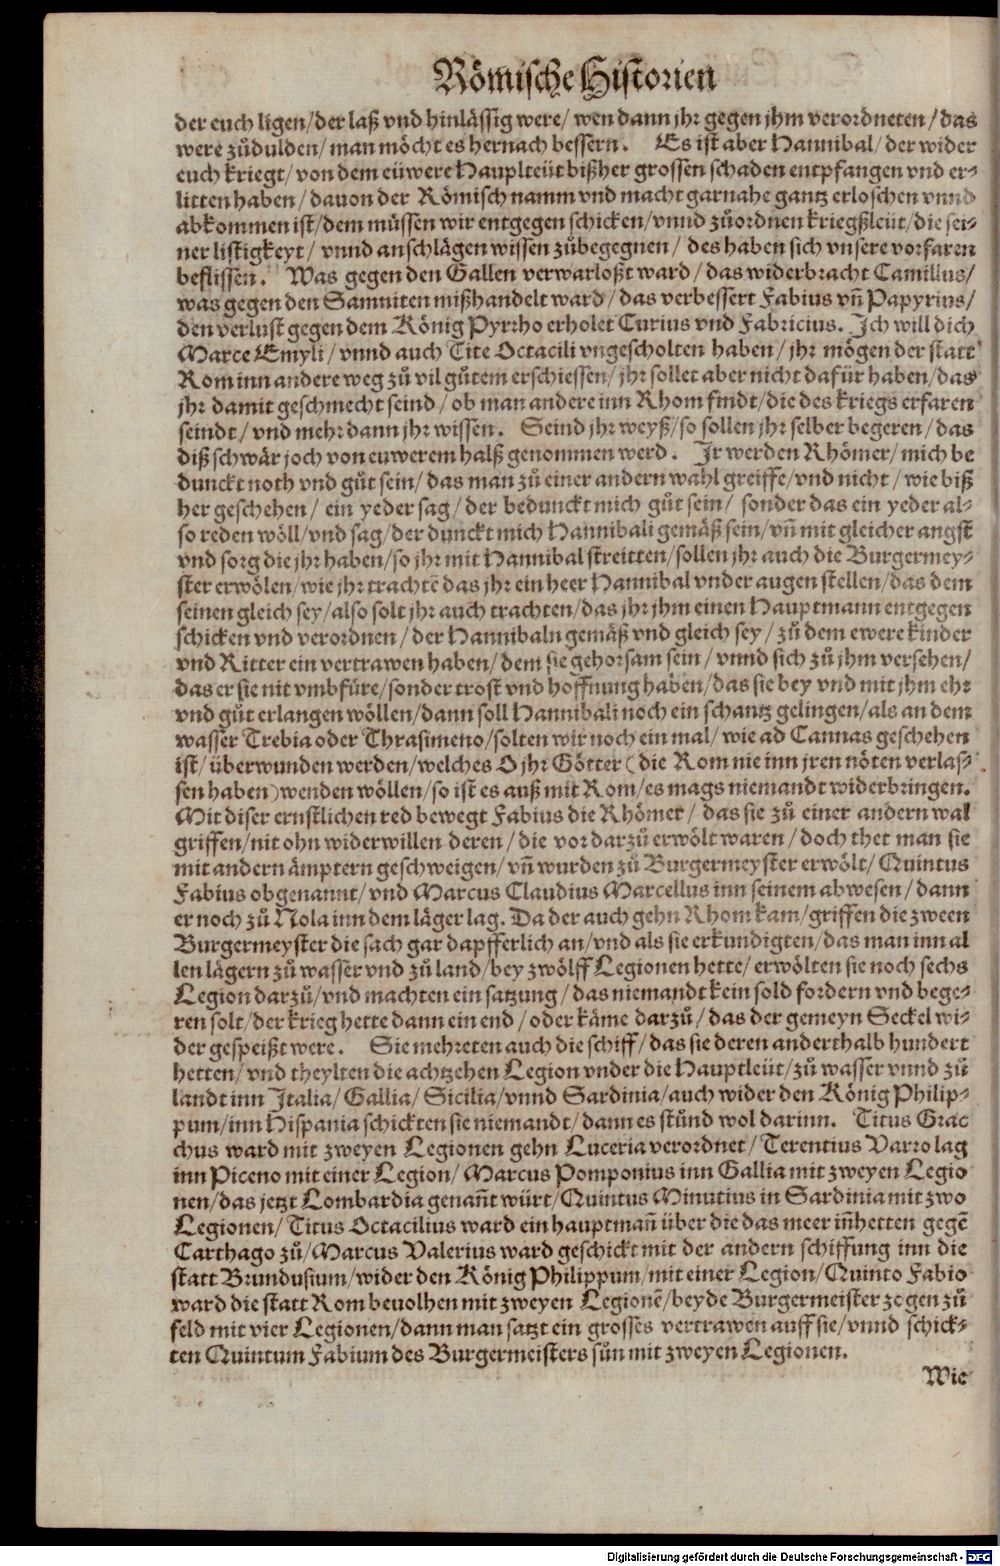 Römische Historien
der euch ligen/der laß vnd hinlässig were/ wen dann jhr gegen jhm verordneten/das
were zůdulden/man möcht es hernach bessern. Es ist aber Hannibal/der wider
euch kriegt/von dem eüwere Hauplteüt bißher grossen schaden entpfangen vnd er-
litten haben/dauon der Römisch namm vnd macht gar nahe gantz erloschen vnnd
abkommen ist/dem müssen wir entgegen schicken/vnnd zůordnen kriegßleüt/die sei-
ner listigkeyt/ vnnd anschlägen wissen zůbegegnen/ des haben sich vnsere vorfaren
beflissen. Was gegen den Gallen verwarloßt ward/das widerbracht Camillus/
was gegen den Samniten mißhandelt ward/das verbessert Fabius vñ Papyrius/
den verlust gegen dem König Pyrrho erholet Curius vnd Fabricius. Ich will dich
Marce Emyli/vnnd auch Tite Octacili vngescholten haben/jhr mögen der statt
Rom inn andere weg zů vil gůtem erschiessen/jhr sollet aber nicht dafür haben/das
jhr damit geschmecht seind/ob man andere inn Rhom findt/die des kriegs erfaren
seindt/vnd mehr dann jhr wissen. Seind jhr weyß/so sollen jhr selber begeren/das
diß schwär joch von euwerem halß genommen werd. Jr werden Rhömer/mich be
dunckt noth vnd gůt sein/das man zů einer andern wahl greiffe/vnd nicht/wie biß
her geschehen/ein yeder sag/der bedunckt mich gůt sein/ sonder das ein yeder al-
so reden wöll/vnd sag/der dunckt mich Hannibali gemäß sein/vñ mit gleicher angst
vnd sorg die jhr haben/so jhr mit Hannibal streitten/sollen jhr auch die Burgermey-
ster erwölen/wie jhr trachtē das jhr ein heer Hannibal vnder augen stellen/das dem
seinen gleich sey/also solt jhr auch trachten/das jhr jhm einen Hauptmann entgegen
schicken vnd verordnen/der Hannibaln gemäß vnd gleich sey/zů dem ewere kinder
vnd Ritter ein vertrawen haben/dem sie gehorsam sein/vnnd sich zů jhm versehen/
das er sie nit vmbfüre/sonder trost vnd hoffnung haben/das sie bey vnd mit jhm ehr
vnd gůt erlangen wöllen/dann soll Hannibali noch ein schantz gelingen/als an dem
wasser Trebia oder Thrasimeno/solten wir noch ein mal/wie ad Cannas geschehen
ist/überwunden werden/welches O jhr Götter (die Rom nie inn jren nöten verlas-
sen haben) wenden wöllen/so ist es auß mit Rom/es mags niemandt widerbringen.
Mit diser ernstlichen red bewegt Fabius die Rhömer/das sie zů einer andern wal
griffen/nit ohn widerwillen deren/die vor darzů erwölt waren/doch thet man sie
mit andern ämptern geschweigen/vñ wurden zů Burgermeyster erwölt/Quintus
Fabius obgenannt/vnd Marcus Claudius Marcellus inn seinem abwesen/dann
er noch zů Nola inn dem läger lag. Da der auch gehn Rhom kam/griffen die zween
Burgermeyster die sach gar dapfferlich an/vnd als sie erkundigten/das man inn al
len lägern zů wasser vnd zů land/bey zwölff Legionen hette/erwölten sie noch sechs
Legion darzů/vnd machten ein satzung/das niemandt kein sold fordern vnd bege-
ren solt/der krieg hette dann ein end/oder käme darzů/das der gemeyn Seckel wi-
der gespeißt were. Sie mehreten auch die schiff/das sie deren anderthalb hundert
hetten/vnd theylten die achtzehen Legion vnder die Hauptleüt/zů wasser vnnd zů
landt inn Italia/Gallia/Sicilia/vnnd Sardinia/auch wider den König Philip-
pum/inn Hispania schickten sie niemandt/dann es stůnd wol darinn. Titus Grac
chus ward mit zweyen Legionen gehn Luceria verordnet/Terentius Varro lag
inn Piceno mit einer Legion/Marcus Pomponius inn Gallia mit zweyen Legio
nen/das jetzt Lombardia genañt würt/Quintus Minutius in Sardinia mit zwo
Legionen/Titus Octacilius ward ein hauptmañ über die das meer iñhetten gegē
Carthago zů/Marcus Valerius ward geschickt mit der andern schiffung inn die
statt Brundusium/wider den König Philippum/mit einer Legion/Quinto Fabio
ward die statt Rom beuolhen mit zweyen Legionē/beyde Burgermeister zogen zů
feld mit vier Legionen/dann man satzt ein grosses vertrawen auff sie/vnnd schick-
ten Quintum Fabium des Burgermeisters sůn mit zweyen Legionen.
Wie
Digitalisierung gefördert durch die Deutsche Forschungsgemeinschaft - DFG